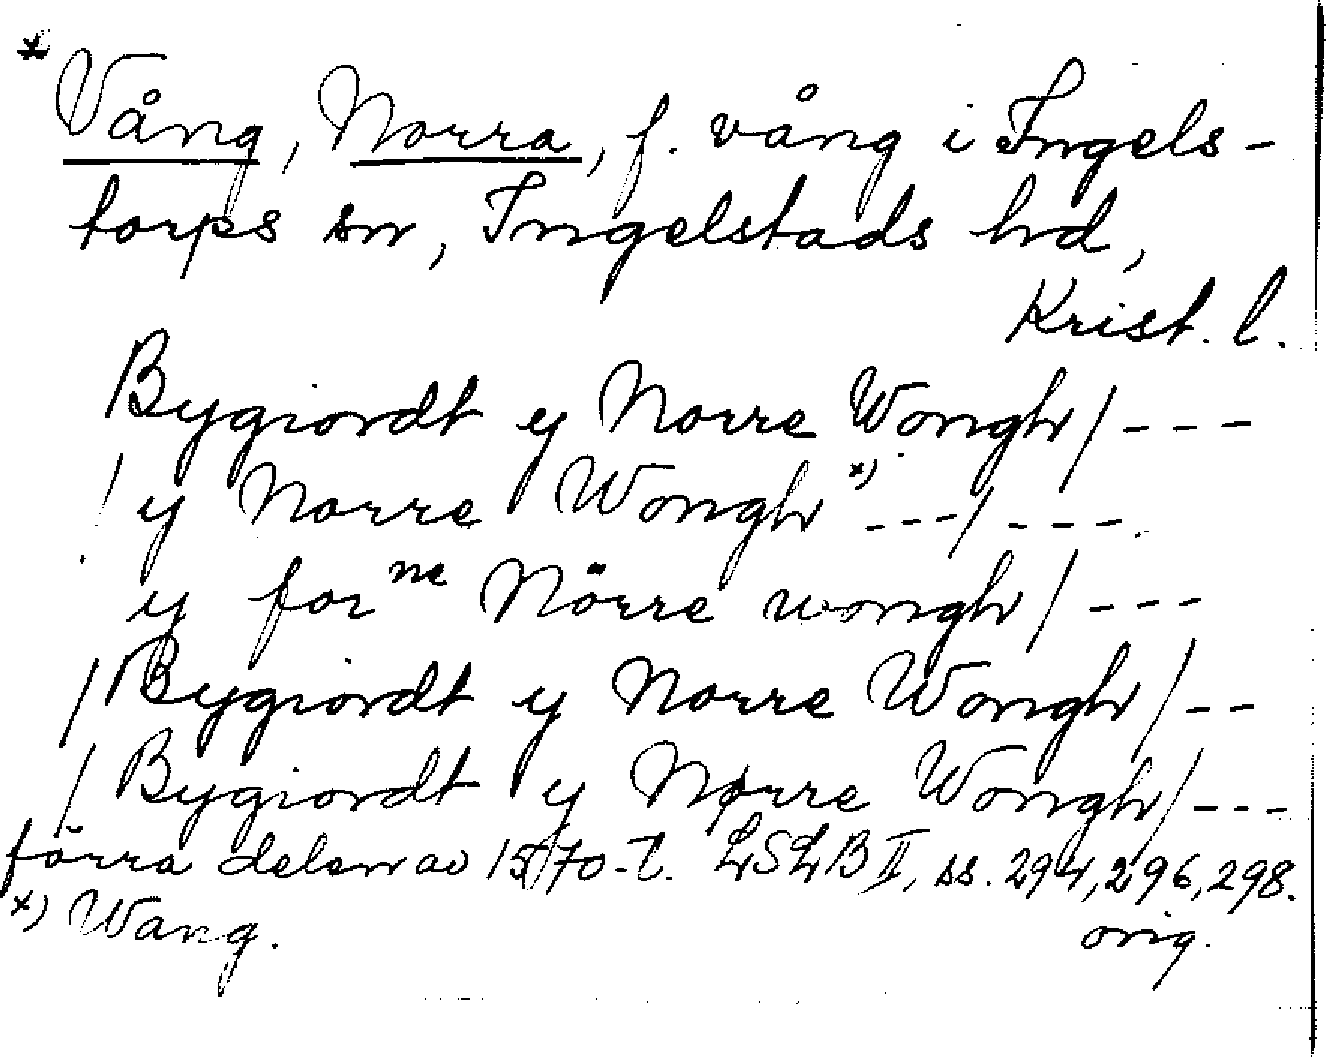 * Vång, Norra, f. vång i Ingels-
torps sn, Ingelstads hd,
Krist. l.
Bygiordt y Norre Wongh/---
/y Norre Wongh x) ---/---.
y for ne Nörre wongh/---
/Bygiordt y Norre Wongh/--
/Bygiordt y Nørre Wongh/---
förra delen av 1570-t. LSLB II, ss. 294, 296, 298.
x) Wang. orig.